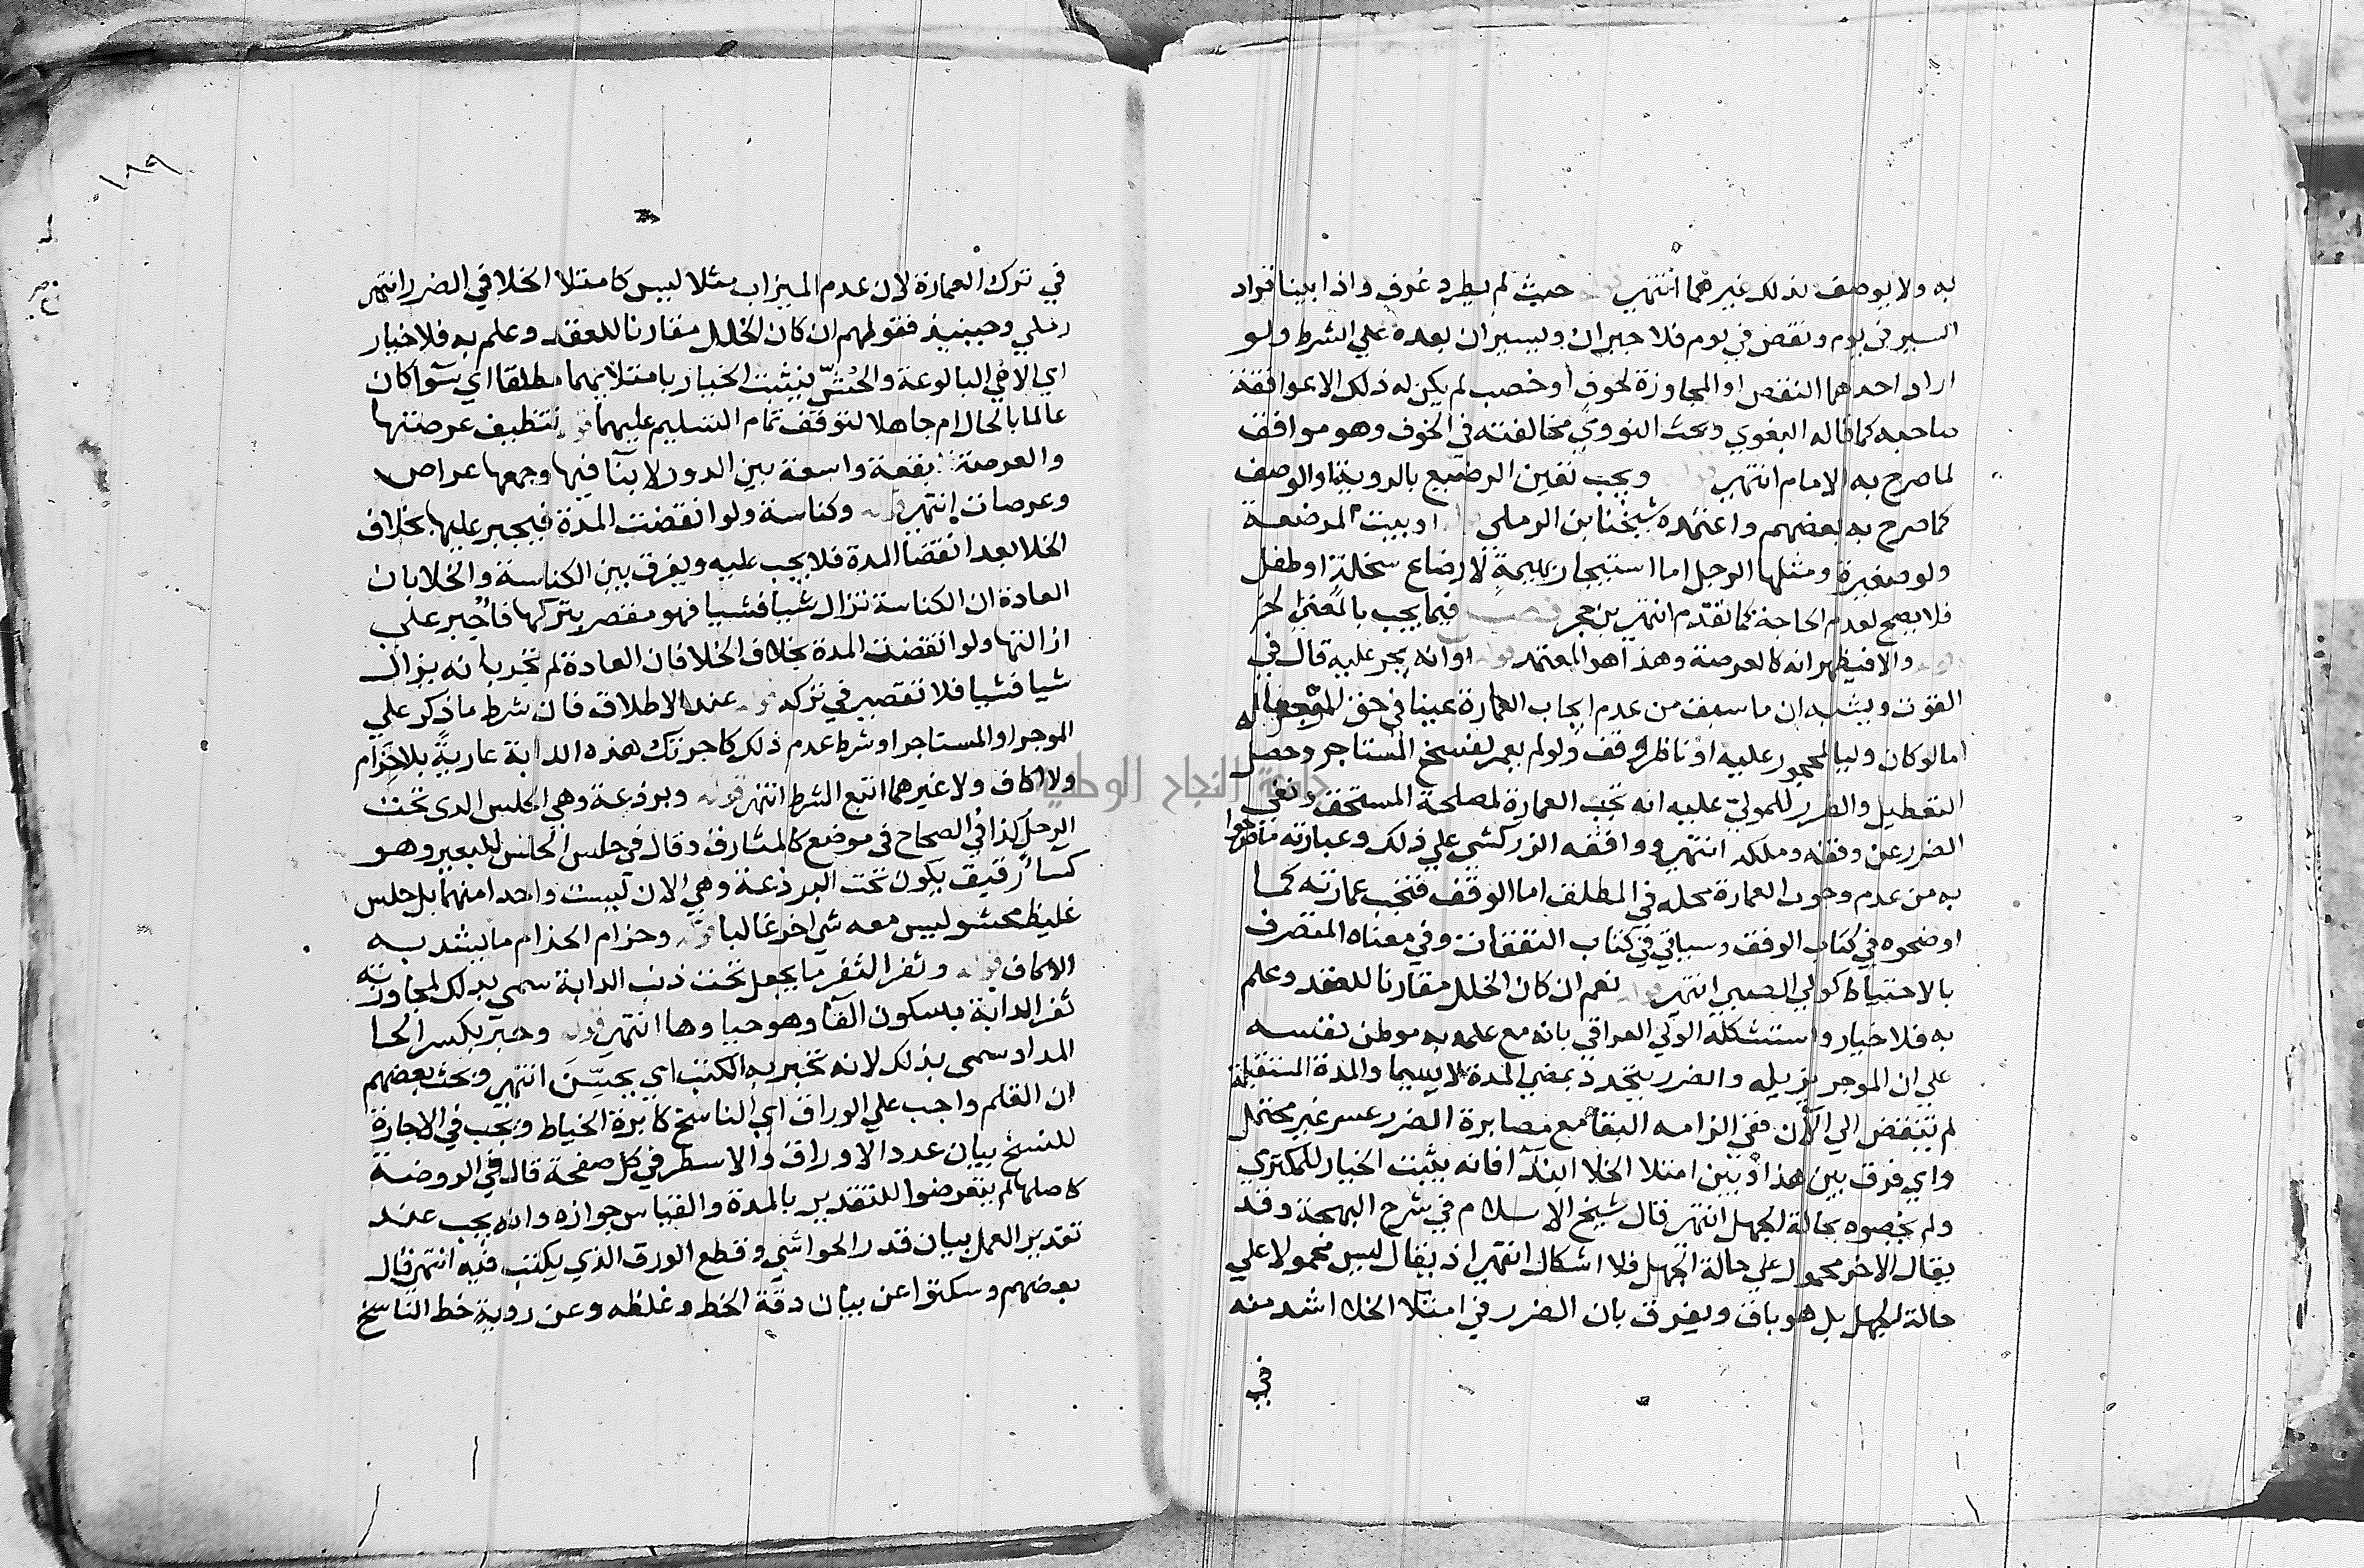 به ولا يوصف بذلك غيرهما انتهى حيث لم يطرد عرف واذا بينا فزاد
السير في يوم ونقص في يوم فلا جبران ويسيران بعده على الشرط ولو
اراد احدهما النقص او المجاوزة لخوف او خصب لم يكن له ذلك الا بموافقة
صاحبه كما قاله البغوي وبحث النووي مخالفته في الخوف وهو موافق
لما صرح به الامام انتهى ويجب تعين الرضيع بالروية او الوصف
كما صرح به بعضهم واعتمده شيخنا بن الرملي او بيت المرضعة
ولو صغيرة ومثلها الرجل اما استيجار بهيمة لارضاع سخلة او طفل
فلا يصح لعدم الحاجة كما تقدم انتهى بن حجر فيما يجب بالمعنى
والا فيظهر انه كالعرصة وهذا هو المعتمد قوله او انه يجر عليه قال في
القوت ويشبه ان ما سبق من عدم ايجاب العمارة عينا في حق
اما لو كان وليا لمحجور عليه او ناظر وقف ولو لم يعمر لفسخ المستاجر وحصل
التعطيل والضرر للمولي عليه انه تجب العمارة لمصلحة المستحق ونفي
الضرر عن وقفه وملكه انتهى ووافقه الزركشي على ذلك وعبارته
به من عدم وجوب العمارة محله في المطلق اما الوقف فتجب عمارته كما
اوضحوه في كتاب الوقف وسياتي في كتاب النفقات وفي معناه المتصرف
بالاحتياط كولي الصبي انتهى قوله نعم ان كان الخلل مقارنا للعقد وعلم
به فلا خيار واستشكله الولي العراقي بانه مع علمه به موطن نفسه
على ان الموجر يزيله والضرر يتجدد بمضي المدة لا سيما والمدة المستقبلة
لم تنقض الى الآن ففي الزامه البقا مع مصابرة الضرر عسر غير محتمل
واي فرق بين هذا وبين امتلا الخلا ابتدا فانه يثبت الخيار للمكتري
ولم يخصوه بحالة الجهل انتهى قال شيخ الاسلام في شرح البهجة وقد
يقال الاخر محمول على حالة الجهل فلا اشكال انتهى اذ يقال ليس محمولا على
حالة الجهل بل هو باق ويفرق بان الضرر في امتلا الخلا اشد منه
في
١٨٩
في ترك العمارة لان عدم الميزاب مثلا ليس كامتلا الخلا في الضرر انتهى
رملي وحينيذ فقولهم ان كان الخلل مقارنا للعقد وعلم به فلا خيار
اي الا في البالوعة والحش فيثبت الخيار بامتلايهما مطلقا اي سوآ كان
عالما بالحال ام جاهلا لتوقف تمام التسليم عليهما قوله تنظيف عرصتها
والعرصة بقعة واسعة بين الدور لا بنآ فيها وجمعها عراص
وعرصات انتهى قوله وكناسة ولو انقضت المدة فيجبر عليها بخلاف
الخلا بعد انقضا المدة فلا يجب عليه ويفرق بين الكناسة والخلا بان
العادة ان الكناسة تزال شيا فشيا فهو مقصر بتركها فأجبر على
ازالتها ولو انقضت المدة بخلاف الخلا فان العادة لم تجر بانه يزال
شيا فشيا فلا تقصير في تركه قوله عند الاطلاق فان شرط ما ذكر على
الموجر او المستاجر او شرط عدم ذلك كاجرتك هذه الدابة عارية بلا حزام
ولا اكاف ولا غيرهما اتبع الشرط انتهى قوله وبرذعة وهي الحلس الذي تحت
الرحل كذا في الصحاح في موضع كالمشارق وقال في حلس الحلس للبعير وهو
كسأ رقيق يكون تحت البرذعة وهي الان ليست واحدا منهما بل حلس
غليظ محشو ليس معه شي اخر غالبا قوله وحزام الحزام ما يشد به
الاكاف قوله وثفر الثفر ما يجعل تحت ذنب الدابة سمي بذلك لمجاورته
ثفر الدابة بسكون الفآ وهو حياوها انتهى قوله وحبر بكسر الحا
المداد سمي بذلك لانه تحبر به الكتب اي يحسن انتهى وبحث بعضهم
ان القلم واجب على الوراق اي الناسخ كابرة الخياط ويجب في الاجارة
للنسخ بيان عدد الاوراق والاسطر في كل صفحة قال في الروضة
كاصلها لم يتعرضوا للتقدير بالمدة والقياس جوازه وانه يجب عند
تقدير العمل بيان قدر الحواشي وقطع الورق الذي يكتب فيه انتهى قال
بعضهم وسكتوا عن بيان دقة الخط وغلظه وعن روية خط الناسخ
جامعة النجاح الوطنية